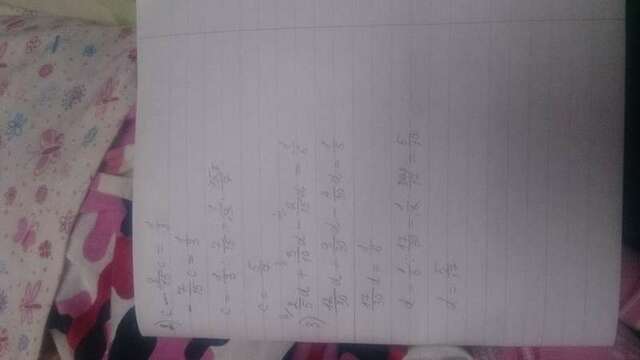 2) c - 8/15 c = 1/3
- 7/15 c = 1/3
c = 1/3 : 7/15 = 1/3 · 15/7
c = 5/7
3) 2/5 d + 3/10 d - 2/15 d = 1/6
12/30 d + 9/30 d - 4/30 d = 1/6
17/30 d = 1/6
d = 1/6 : 17/30 = 1/6 · 30/17 = 5/17
d = 5/17